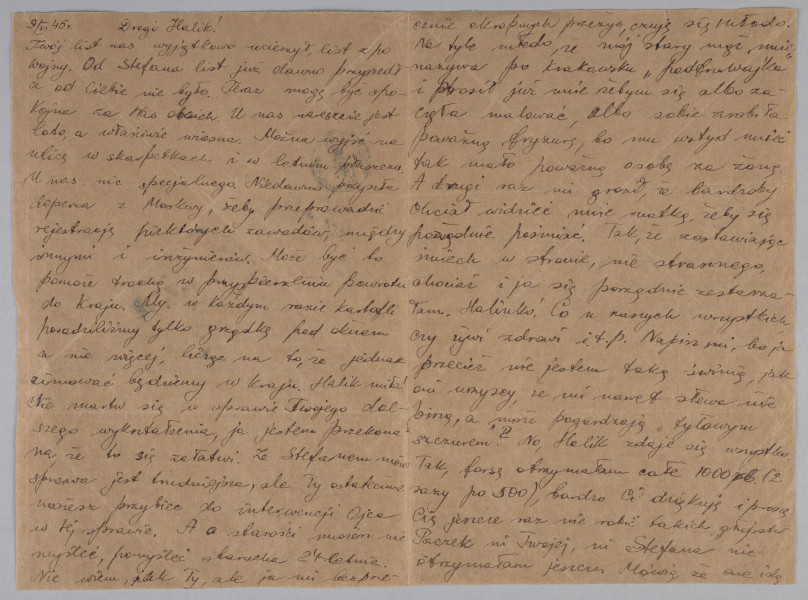 9/VI.45r. Drogi Halik!
Twój list nas wyjątkowo ucieszył, list z po
wojny. Od Stefana list już dawno przyszedł
a od Ciebie nie było. Teraz mogę być spo-
kojna za Was oboich. U nas nareszcie jest
lato, a właściwie wiosna. Można wyjść na
ulicę w skarpetkach i w letnim płaszczu.
U nas nic specjalnego. Niedawno przyszła
depesza z Moskwy, żeby przeprowadzić
rejestrację niektórych zawodów, między
innymi i inżynierów. Może być to
pomoże trochę w przyspieszeniu powrotu
do Kraju. My w każdym razie kartofli
posadziliśmy tylko grządkę pod oknem
a nie więcej, licząc na to, że jednak
zimować będziemy w Kraju. Halik miła!
Nie martw się w sprawie Twojego dal-
szego wykształcenia, ja jestem przekona
na, że to się załatwi. Ze Stefanem
sprawa jest trudniejsza, ale Ty ostatecznie
możesz przybiec do interwencji Ojca
w tej sprawie. A o starości musisz nie
myśleć, pomyśleć starucha 24-letnia.
Nie wiem, jak Ty, ale ja mi
okropnych przeżyć, czuję się młodo.
Na tyle młodo, że mój stary mąż, mnie
nazywa po krakowsku "podfruwajka"
i prosił już mnie żebym się albo za-
częła malować, albo sobie zrobiła
poważną fryzurę, bo mu wstyd mieć
tak mało poważną osobę za żonę.
A drugi raz mi groził, że bardzoby
chciał widzieć mnie matką, żeby się
porządnie pośmiać. Tak, że zostawiając
śmiech w stronie, nic strasznego,
chociaż i ja się porządnie zestarza-
łam. Halinko! Co u naszych wszystkich
czy żywi zdrowi i.t.p. Napisz mi, bo ja
przecież nie jestem taką świnią, jak
oni wszyscy, że mi nawet słowa nie
piszą, a może pogardzają "tyłowym
szczurem"? No, Halik zdaje się wszystko.
Tak, forsę otrzymałam całe 1000 rb. (2
razy po 500), bardzo Ci dziękuję i proszę
Cię jeszcze raz nie robić takich głupstw
Paczek ni Twojej, ni Stefana nie
otrzymałam jeszcze. Mówią, że one idą